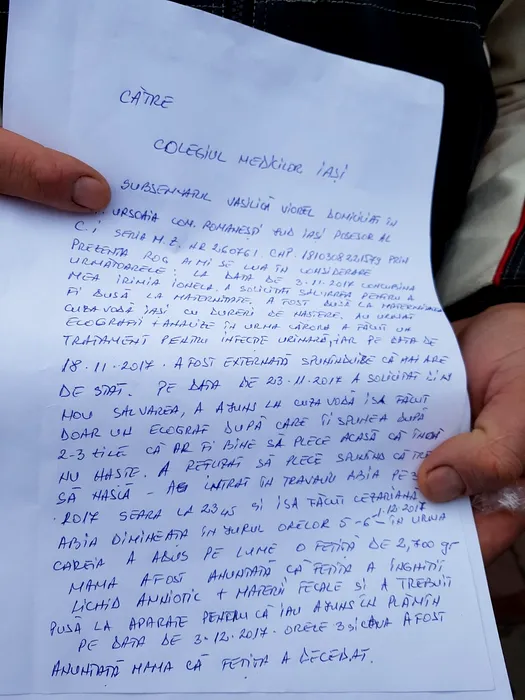 CĂTRE
COLEGIUL MEDICILOR IAȘI
SUBSEMNATUL VASILICĂ VIOREL DOMICILIAT ÎN
URSOAIA COM. ROMÂNEȘTI JUD IAȘI POSESOR AL
C.i SERIA M.Z. NR 260761. CNP. PRIN
PREZENTA ROG A MI SE LUA ÎN CONSIDERARE
URMĂTOARELE: LA DATA DE 3.11.2017 CONCUBINA
MEA IRIMIA IONELA. A SOLICITAT SALVAREA PENTRU A
FI DUSĂ LA MATERNITATE. A FOST DUSĂ LA MATERNITATEA
CUZA VODĂ IAȘI CU DURERI DE NASTERE. AU URMAT
ECOGRAFII + ANALIZE ÎN URMA CĂRORA A FĂCUT UN
TRATAMENT PENTRU INFECȚIE URINARĂ, IAR PE DATA DE
18.11.2017. A FOST EXTERNATĂ SPUNÎNDUISE CĂ MAI ARE
DE STAT. PE DATA DE 23.11.2017 A SOLICITAT DIN
NOU SALVAREA, A AJUNS LA CUZA VODĂ ISA FĂCUT
DOAR UN ECOGRAF DUPĂ CARE ÎI SPUNEA DUPĂ
2-3 ZILE CĂ AR FI BINE SĂ PLECE ACASĂ CĂ ÎNCĂ
NU NASTE. A REFUZAT SĂ PLECE SPUNÎND CĂ
SĂ NASCĂ - A INTRAT ÎN TRAVALIU ABIA PE
2017 SEARA LA 23 45 SI ISA FĂCUT CEZARIANĂ
1.12.2017
ABIA DIMINEATA ÎN JURUL ORELOR 5-6 - ÎN URMA
CAREIA A ADUS PE LUME O FETITĂ DE 2,700 gr
MAMA A FOST ANUNTATĂ CĂ FETITA A ÎNGHITIT
LICHID AMNIOTIC + MATERII FECALE SI A TREBUIT
PUSĂ LA APARATE PENTRU CĂ IAU AJUNS ÎN PLĂMÎN
PE DATA DE 3.12.2017. ORELE 3 SI CEVA A FOST
ANUNTATĂ MAMA CĂ FETITA A DECEDAT.